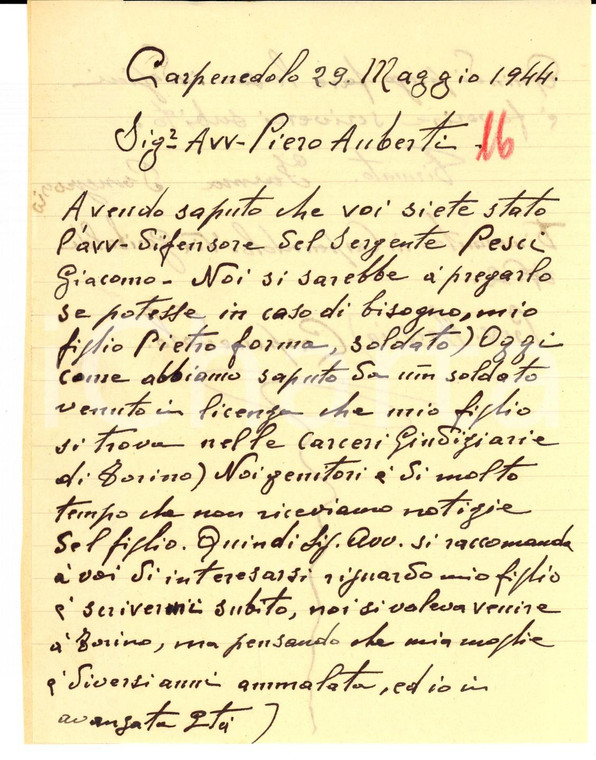 Carpenedolo 29. Maggio 1944.
Sigr Avv- Piero Auberti -
16
Avendo saputo che voi siete stato
l'avv- difensore del Sergente Pesci
Giacomo - Noi si sarebbe á pregarlo
se potesse in caso di bisogno, mio
figlio Pietro forma, soldato) Oggi
come abbiamo saputo da un soldato
venuto in licenza che mio figlio
si trova nelle Carceri Giudiziarie
di Torino) Noi genitori é di molto
tempo che non riceviamo notizie
del figlio. Quindi Sig. Avv. si raccomanda
á voi di interesarsi riguardo mio figlio
é scrivermi subito, noi si voleva venire
á Torino, ma pensando che mia moglie
é diversi anni ammalata, ed io in
avanzata Età )